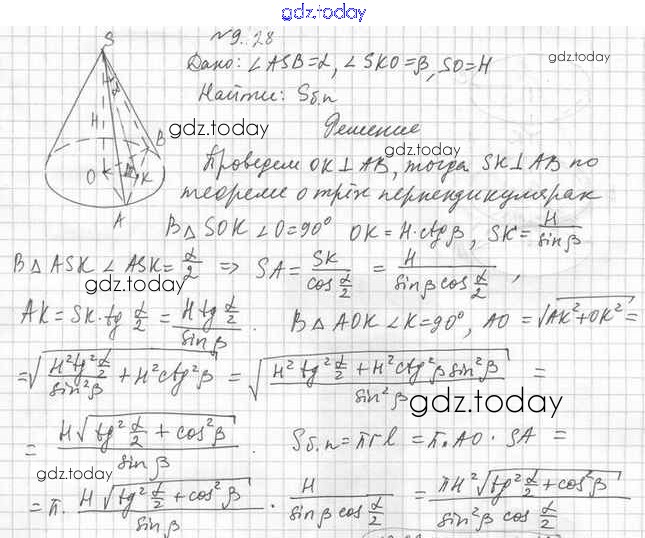 gdz.today
№9.28
Дано: ∠ASB=α, ∠SKO=β, SO=H
gdz.today
Найти: Sб.п
gdz.today
Решение
gdz.today
Проведем OK⊥AB, тогда SK⊥AB по
теореме о трёх перпендикулярах
S
H
α
B
O
β
K
A
В △ SOK ∠O=90° OK=H·ctgβ, SK=H/sinβ
В △ ASK ∠ASK=α/2 ⇒ SA=SK/cos α/2 = H/(sinβ cos α/2),
gdz.today
AK=SK·tg α/2 = H tg α/2 / sinβ. В △ AOK ∠K=90°, AO=√(AK²+OK²)=
=√(H²tg² α/2 / sin²β + H²ctg²β) = √((H²tg² α/2 + H²ctg²β sin²β) / sin²β) =
gdz.today
= H√(tg² α/2 + cos²β) / sinβ. Sб.п=πrl=π·AO·SA=
gdz.today
=π· H√(tg² α/2 + cos²β) / sinβ · H/(sinβ cos α/2) = πH²√(tg² α/2 + cos²β) / (sin²β cos α/2)